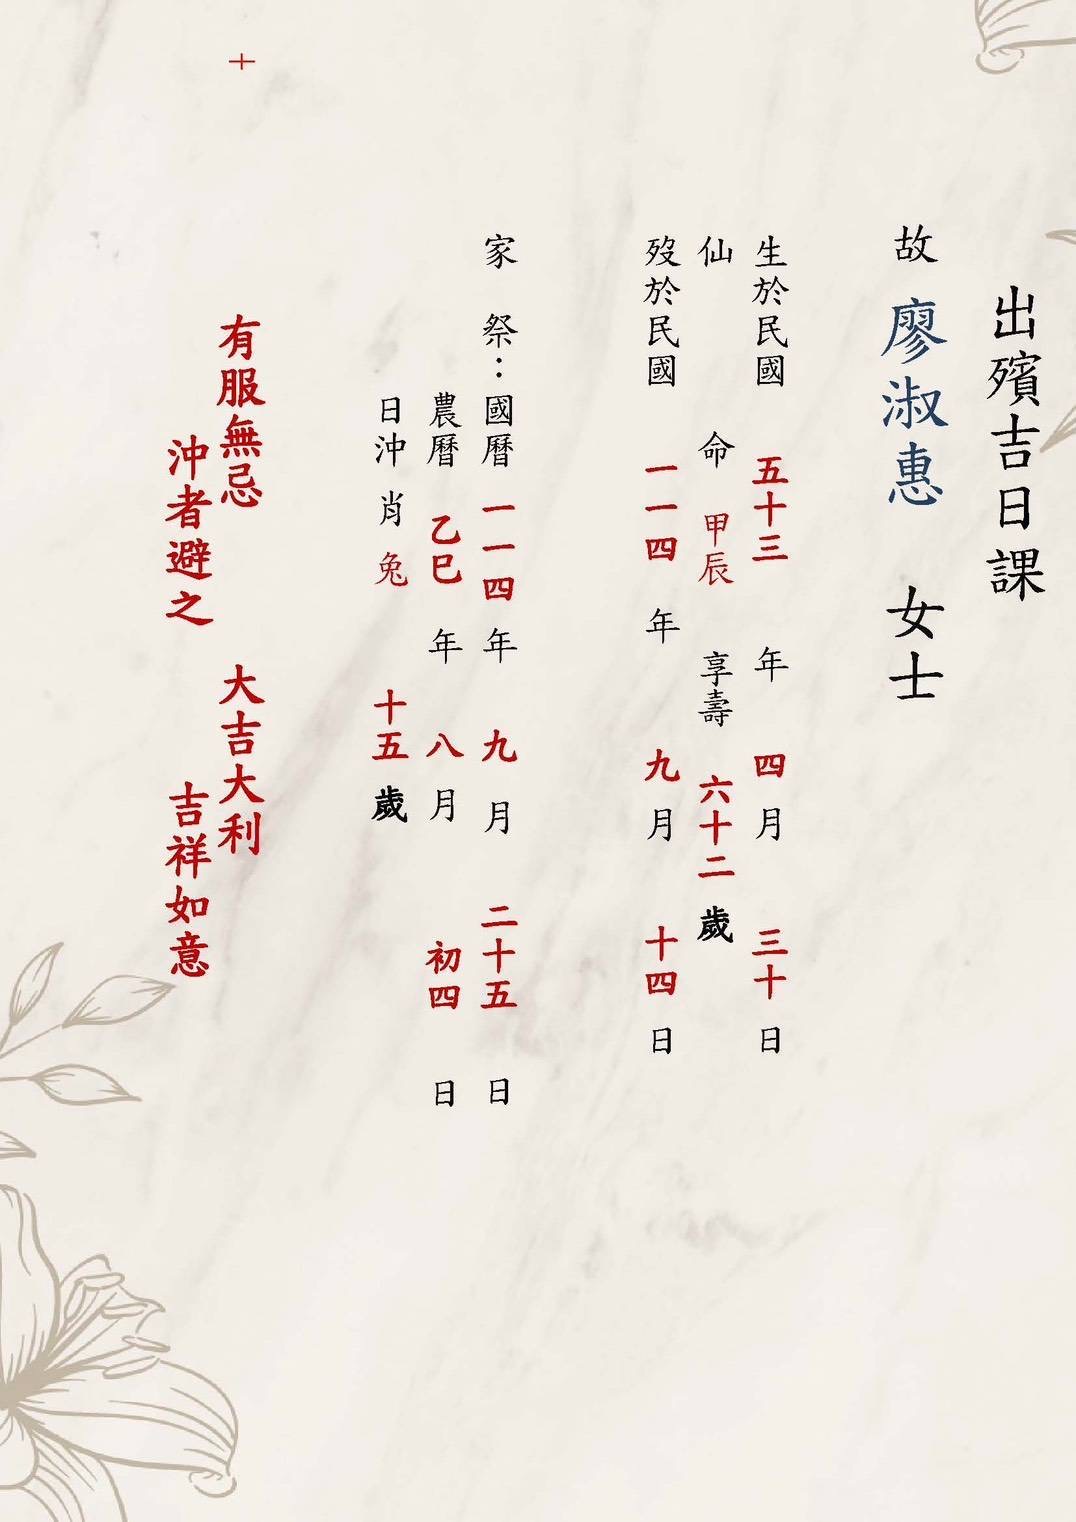 出殯吉日課
故 廖淑惠 女士
生於民國 五十三 年 四月 三十 日
仙 命 甲辰 享壽 六十二 歲
歿於民國 一一四 年 九月 十四 日
家 祭：國曆 一一四 年 九 月 二十五 日
農曆 乙巳 年 八月 初四 日
日沖 肖 兔 十五 歲
十
有服無忌 大吉大利
沖者避之 吉祥如意